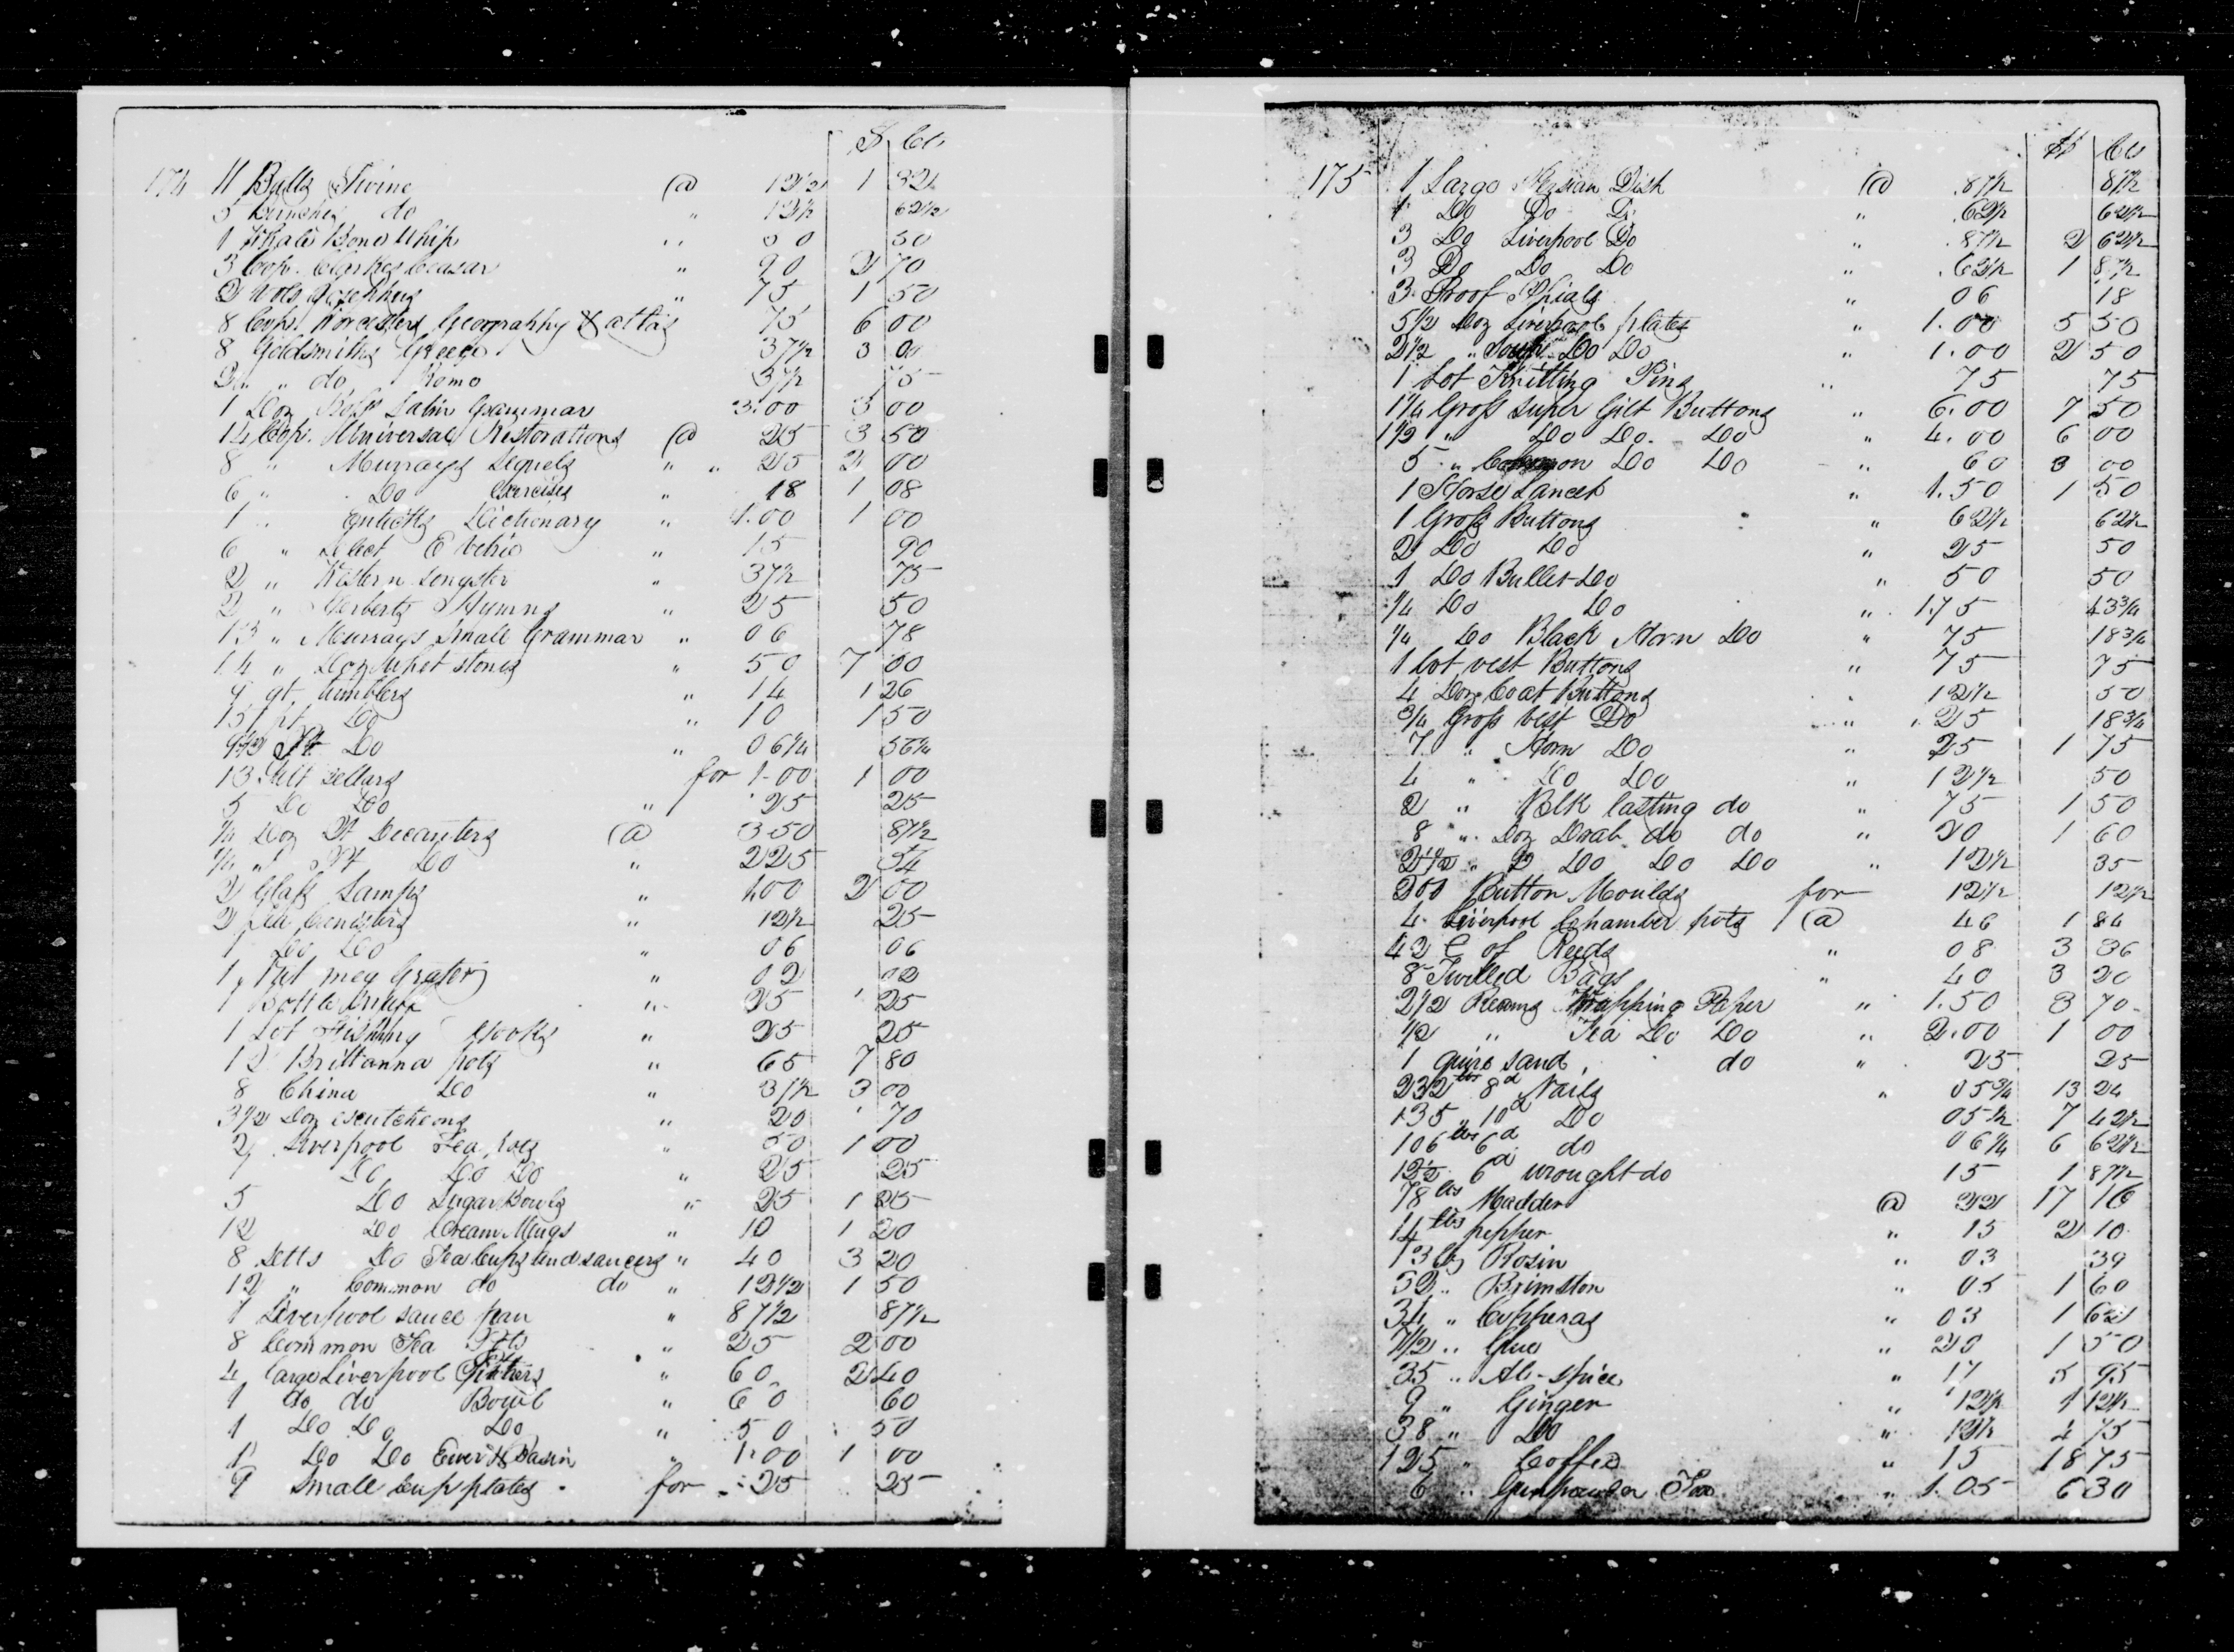 $ Cts
174 11 Balls Twine @ 12 1/2 1 32 1/2
5 Bunches do " 12 1/2 62 1/2
1 Whale Bone Whip " 50 50
3 Cop. Clarkes Ceasar " 90 2 70
2 Vols Josephus " 75 1 50
8 Cops. Worcesters Geography & atlas 75 6 00
8 Goldsmiths Greece 37 1/2 3 00
2 " do Rome 37 1/2 75
1 Doz Latin Grammar 3.00 3 00
14 Cop. Universal Restorations @ 25 3 50
8 " Murrays Sequels " " 25 2 00
6 " Do Exercises " 18 1 08
1 " Enticks Dictionary " 1.00 1 00
6 " Select 15 90
2 " Western Songster " 37 1/2 75
2 " Herberts Hymns " 25 50
13 " Murrays Small Grammar " 06 78
14 " Doz Whet stones " 50 7 00
9 qt. tumblers " 14 1 26
15 pt Do " 10 1 50
9 Do " 06 1/4 56 1/4
13 Salt Sellars for 1.00 1 00
5 Do Do " 25 25
1/4 Doz Qt Decanters @ 3.50 87 1/2
1/4 " Pt Do " 2 25 54
2 Glass Lamps " 1.00 2 00
2 Canisters " 12 1/2 25
1 Do Do " 06 06
1 Nut meg Grater " 02 02
1 Bottle " 25 25
1 Lot Fishing Hooks " 25 25
12 Brittanna pots " 65 7 80
8 China Do " 37 1/2 3 00
3 1/2 Doz escutcheons " 20 70
2 Liverpool Tea pots " 50 1 00
1 Do Do Do " 25 25
5 Do Sugar Bowls " 25 1 25
12 Do Cream Mugs " 10 1 20
8 Setts Do Tea Cups and saucers " 40 3 20
12 " Common do do " 12 1/2 1 50
1 Liverpool sauce pan " 87 1/2 87 1/2
8 Common Tea Pots " 25 2 00
4 large Liverpool Pitchers " 60 2 40
1 do do Bowl " 60 60
1 Do Do Do " 50 50
1 Do Do Ewer & Basin " 1.00 1 00
9 Small Cup plates for 25 25
$ Cts
175 1 Large Dish @ .87 1/2 87 1/2
1 Do Do Do " .62 1/2 62 1/2
3 Do Liverpool Do " .87 1/2 2 62 1/2
3 Do Do Do " .62 1/2 1 87 1/2
3 Proof Phials " 06 18
5 1/2 Doz Liverpool plates " 1.00 5 50
2 1/2 " Soup Do Do " 1.00 2 50
1 Lot Knitting Pins " 75 75
1 1/4 Gross Super Gilt Buttons " 6.00 7 50
1 1/2 " Do Do Do " 4.00 6 00
5 " Common Do Do " 60 3 00
1 Horse Lancet " 1.50 1 50
1 Gross Buttons " 62 1/2 62 1/2
2 Do Do " 25 50
1 Do Bullet Do " 50 50
1/4 Do Do " 1.75 43 3/4
1/4 Do Black Horn Do " 75 18 3/4
1 Lot vest Buttons " 75 75
4 Doz Coat Buttons " 12 1/2 50
3/4 Gross Vest Do " 25 18 3/4
7 " Horn Do " 25 1 75
4 " Do Do " 12 1/2 50
2 " Blk lasting do " 75 1 50
8 " Doz Drab do do " 20 1 60
2 1/2 " D Do Do Do " 12 1/2 35
200 Button Moulds for 12 1/2 12 1/2
4 Liverpool Chamber pots @ 46 1 84
42 C of Reeds " 08 3 36
8 Twilled Bags " 40 3 20
2 1/2 Reams Wrapping Paper " 1.50 3 70
1/2 " Tea Do Do " 2.00 1 00
1 quire sand do " 25 25
232 lbs 8d Nails " 05 3/4 13 24
135 " 10d Do 05 1/2 7 42 1/2
106 lbs 6d do 06 1/4 6 62 1/2
12 1/2 6d wrought do 15 1 87 1/2
78 lbs Madder @ 22 17 16
14 lbs pepper " 15 2 10
13 lbs Rosin " 03 39
32 " Brimston " 05 1 60
54 " Copperas " 03 1 62
7 1/2 " Glue " 20 1 50
35 " Al-spice " 17 5 95
9 " Ginger " 12 1/2 1 12 1/2
38 " Do " 12 1/2 4 75
125 " Coffee " 15 18 75
6 " Gunpowder Tea " 1.05 6 30